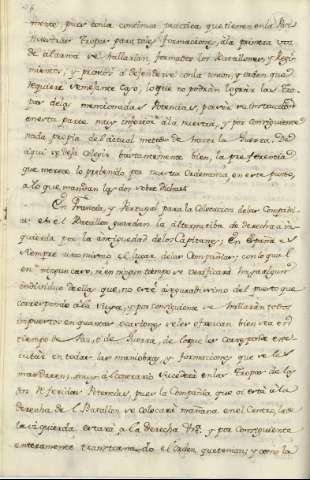 mente, pues con la continua practica, que tienen en la
nuestras Tropas para tales formaciones, à la primera voz
de alarma se hallarian formados los Batallones, y Regi-
mientos, y prontos à defenderse con la union, y orden que
requiere semejante caso, lo que no podràn lograr las Tro-
pas de las mencionadas Potencias, por ser su Instruccion
en esta parte muy inferior à la nuestra, y por consiguiente
nada propia del actual metodo de hacer la Guerra. De
aqui se deja colegir bastantemente bien, la preferencia
que merece lo prebenido por nuestra Ordenanza en este punto,
a lo que mandan las dos sobre dichas.
En Francia, y Portugal para la Colocacion de las Compañias
en el Batallon guardan la alternatiba de derecha a iz-
quierda por la antiguedad de los Capitanes; En España es
siempre uno mismo el lugar de las Compañias; con lo qual
en ningun caso, ni en ningun tiempo se verificarà haya algun
individuo de ellas que no estè asegurado del puesto que
corresponde à la suya, y por consiguiente se hallaràn todos
impuestos en quantas ocasiones se les ofrezcan bien sea en
tiempo de Paz, ò de Guerra, de lo que les corresponde exe-
cutar en todas las maniobras, y formaciones que se les
mandasen; muy al contrario sucederà en las Tropas de las
dos referidas Potencias, pues la Compañia que oi està a la
derecha del Batallon se colocarà mañana en el Centro, la de
la izquierda estarà a la derecha &c. y por consiguiente
enteramente transtornado el orden que tenian; y como la